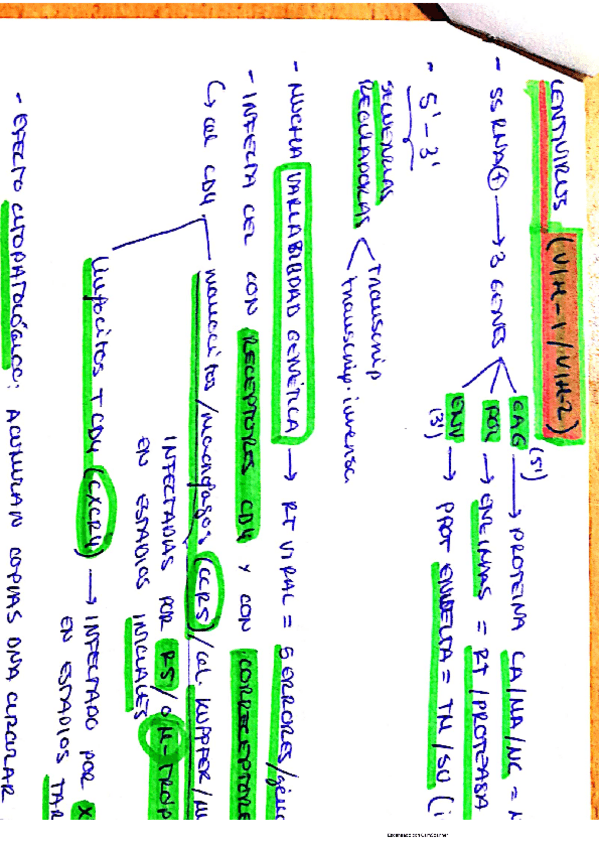 LENTIVIRUS (VIH-1/VIH-2)
- SSRNA(+) → 3 GENES
GAG (5') → PROTEINA CA/MA/NC =
POL → ENZIMAS = RT/PROTEASA
ENV (3') → PROT ENVUELTA = TM/SU (
- 5'-3'
SECUENCIAS REGULADORAS
transcrip
transcrip. inversa
- MUCHA VARIABILIDAD GENÉTICA → RT VIRAL = 5 ERRORES/
- INFECTA CEL CON RECEPTORES CD4 Y CON CORRECEPTORE
↳ cel CD4
monocitos/macrófagos (CCR5)/cel KUPFFER/
INFECTADAS POR R5/o M-TROP
EN ESTADIOS INICIALES
linfocitos T CD4 (CXCR4) → INFECTADO POR X
EN ESTADIOS TAR
- EFECTO CITOPATOLÓGICO: ACUMULAN COPIAS DNA CIRCULAR
Escaneado con CamScanner